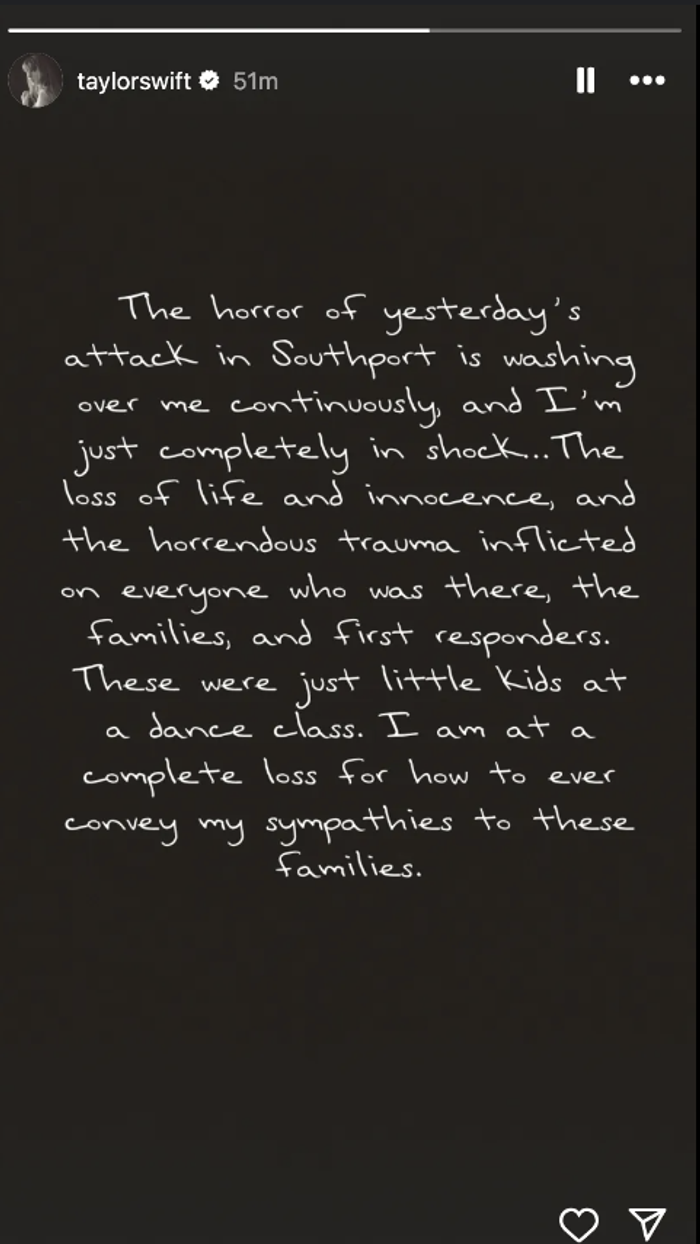 taylorswift 51m
The horror of yesterday's
attack in Southport is washing
over me continuously, and I'm
just completely in shock...The
loss of life and innocence, and
the horrendous trauma inflicted
on everyone who was there, the
families, and first responders.
These were just little kids at
a dance class. I am at a
complete loss for how to ever
convey my sympathies to these
families.